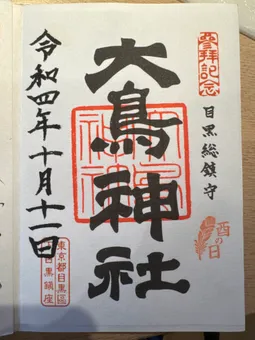 參拝記念
目黒総鎮守
酉の日
大鳥神社
令和四年十月十一日
東京都目黒區
目黒鎮座